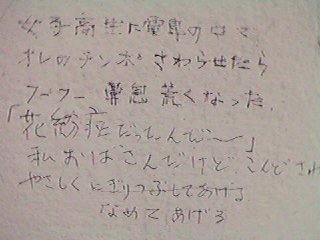 女子高生に電車の中で
オレのチンポさわらせたら
フーフー鼻息荒くなった。
「花粉症だったんだ〜」
私おばさんだけど、こんど
やさしくにぎりつぶしてあげる
なめてあげる